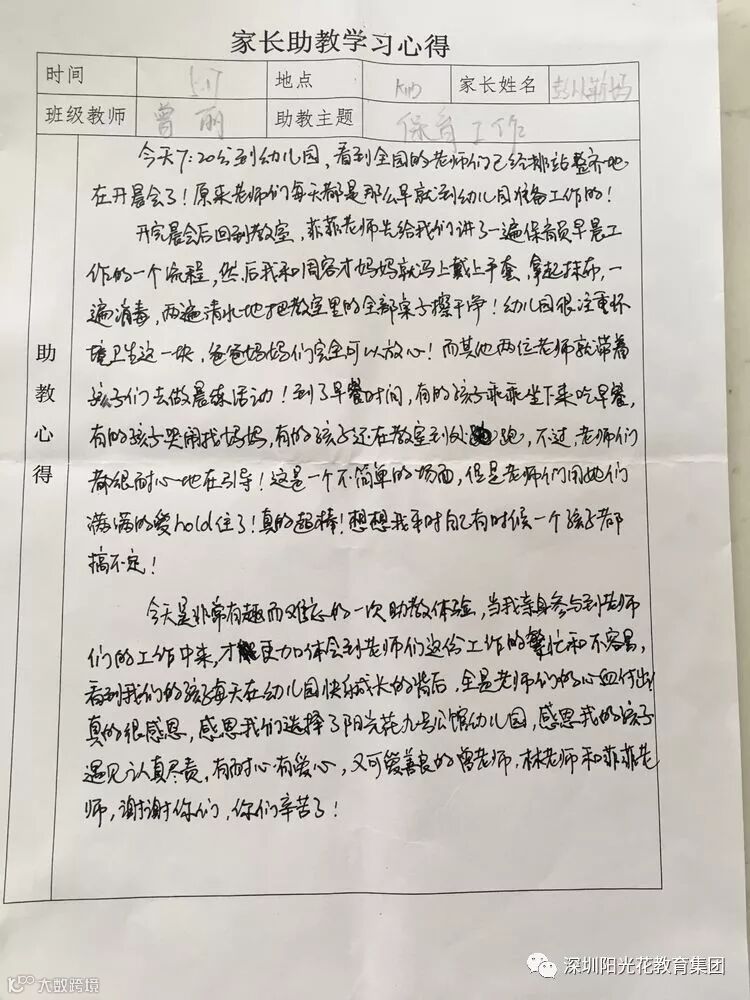 家长助教学习心得
时间 5.17 地点 K1B 家长姓名
班级教师 曾丽 助教主题 保育工作
助教心得
今天7:20分到幼儿园，看到全园的老师们已经排站整齐地
在开晨会了！原来老师们每天都是那么早就到幼儿园准备工作的！
开完晨会后回到教室，菲菲老师先给我们讲了一遍保育员早晨工
作的一个流程，然后我和周容才妈妈就冯上戴上手套，拿起抹布，一
遍消毒，两遍清水地把教室里的全部桌子擦干净！幼儿园很注重环
境卫生这一块，爸爸妈妈们完全可以放心！而其他两位老师就带着
孩子们去做晨练活动！到了早餐时间，有的孩子乖乖坐下来吃早餐，
有的孩子哭闹找妈妈，有的孩子还在教室到处跑，不过，老师们
都很耐心地在引导！这是一个不简单的场面，但是老师们用她们
满满的爱hold住了！真的超棒！想想我平时自己有时候一个孩子都
搞不定！
今天是非常有趣而难忘的一次助教体验，当我亲身参与到老师
们的工作中来，才能更加体会到老师们这份工作的繁忙和不容易，
看到我们的孩子每天在幼儿园快乐成长的背后，全是老师们的心血付出
真的很感恩，感恩我们选择了阳光花九号公馆幼儿园，感恩我的孩子
遇见认真尽责，有耐心有爱心，又可爱善良的曾老师，林老师和菲菲老
师，谢谢你们，你们辛苦了！
深圳阳光花教育集团
大数跨境